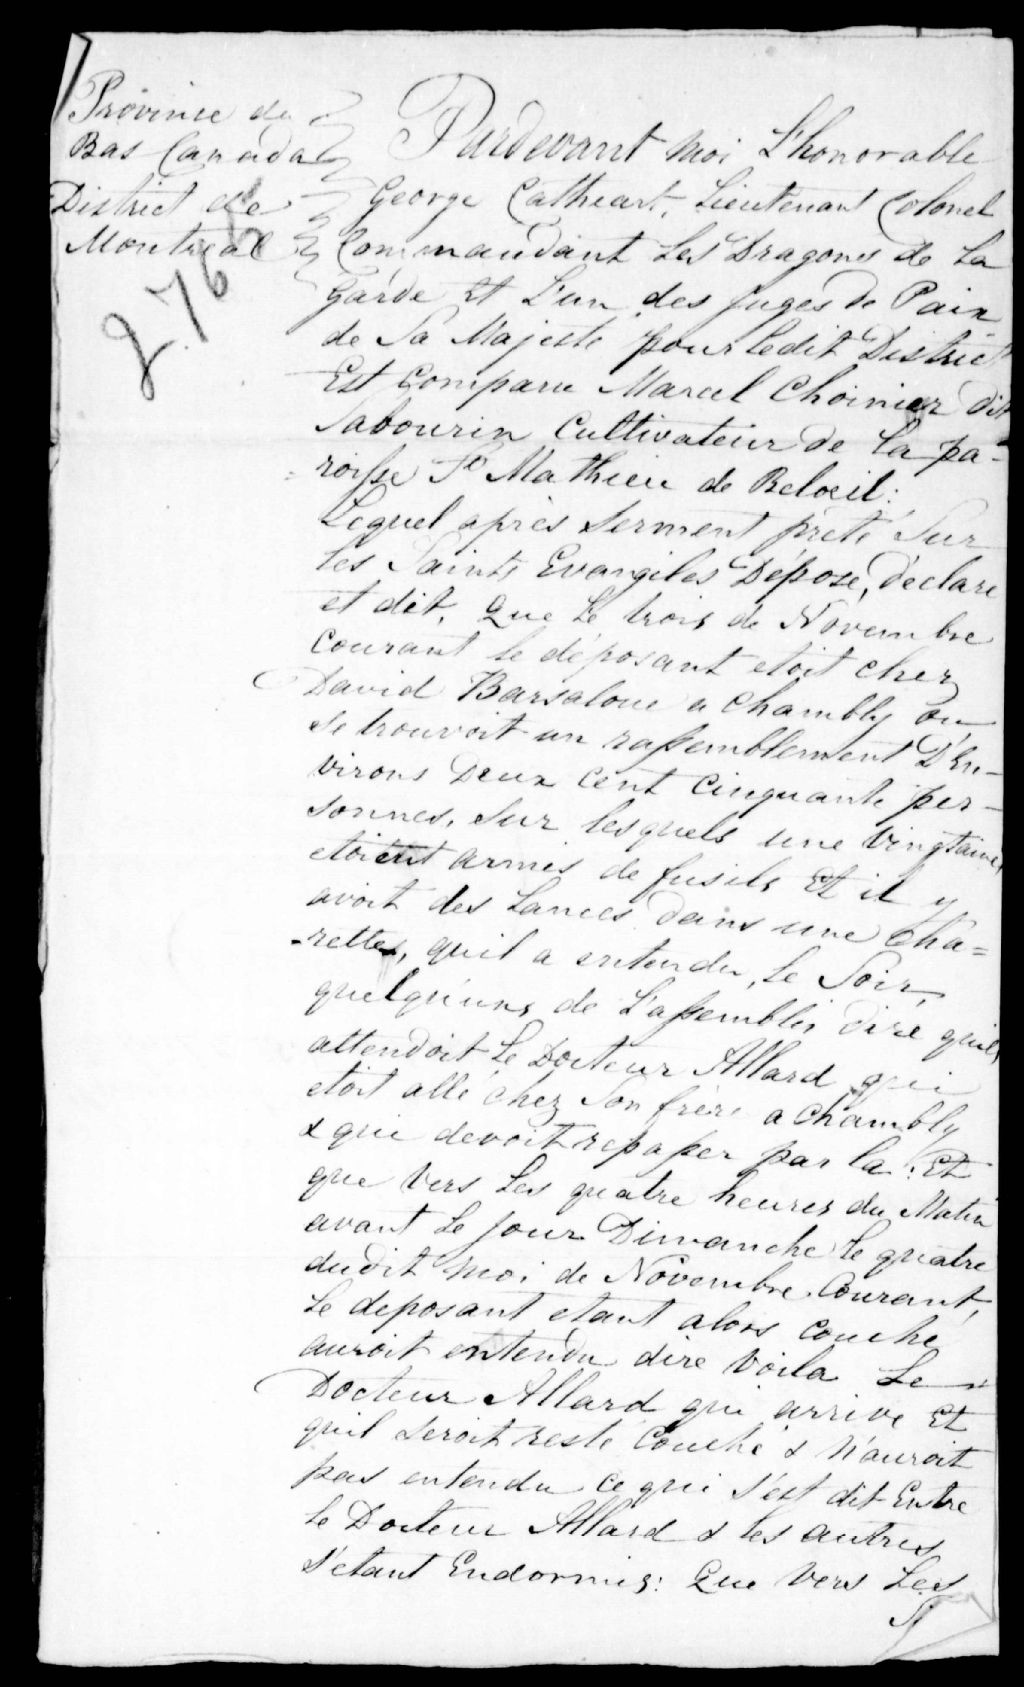 Province du
Bas Canada
District de
Montreal
2765
Pardevant moi L'honorable
George Cathcart, Lieutenant Colonel
Commandant Les Dragons de La
Garde Et L'un des Juges de Paix
de Sa Majesté pour ledit District
Est Comparu Marcel Choinier dit
Sabourin Cultivateur de La pa-
=roisse St Mathieu de Beloeil:
Lequel après Serment prêté Sur
les Saints Evangiles Dépose, déclare
et dit, Que Le trois de Novembre
Courant le déposant etoit chez
David Barsaloue a Chambly ou
se trouvoit un rassemblement D'En-
virons Deux Cent Cinquante per-
sonnes, Sur lesquels une Vingtaine
etoient armés de fusils Et il y
avoit des Lances dans une Cha=
-rette, quil a entendu, Le Soir,
quelqu'uns de L'assemblés dire quils
attendoit Le Docteur Allard qui
etoit allé chez Son frère a Chambly
& qui devoit repasser par la: Et
que Vers Les quatre heures du Matin
avant Le jour Dimanche Le quatre
dudit moi de Novembre Courant,
Le deposant etant alors Couché
auroit entendu dire Voila Le
Docteur Allard qui arrive Et
quil Seroit resté Couché & N'auroit
pas entendu Ce qui S'est dit Entre
le Docteur Allard & les autres
S'etant Endormis: Que Vers Les